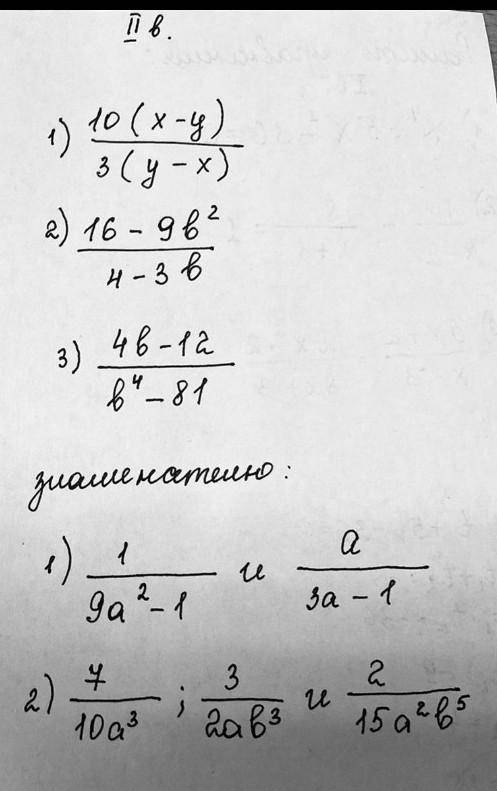 II в.
1) 10(x-y) / 3(y-x)
2) 16-9b² / 4-3b
3) 4b-12 / b⁴-81
знаменателю:
1) 1 / 9a²-1 и a / 3a-1
2) 7 / 10a³ ; 3 / 2ab³ и 2 / 15a²b⁵